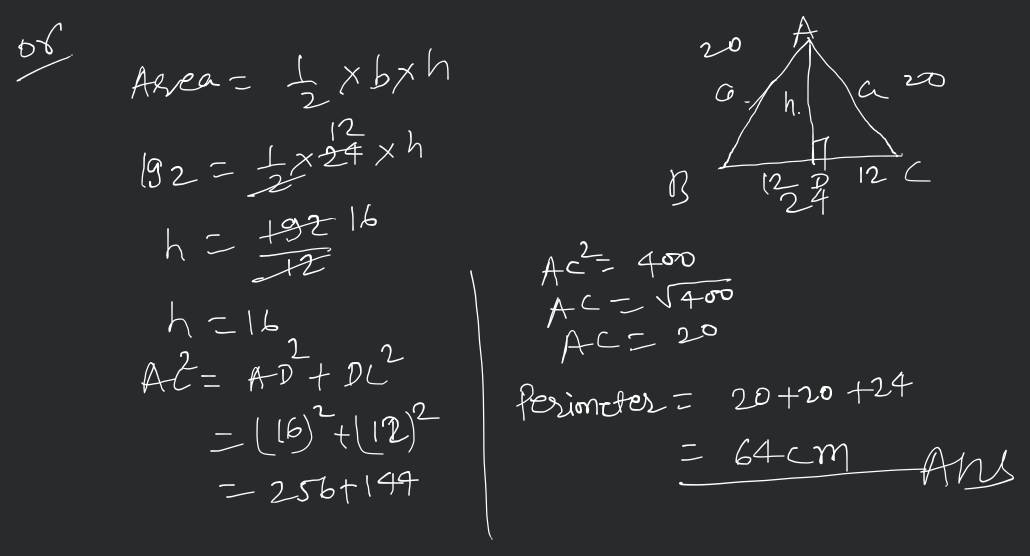 or
Area = 1/2 × b × h
192 = 1/2 × 24 12 × h
h = 192/12 16
h = 16
AC² = AD² + DC²
= (16)² + (12)²
= 256 + 144
20 A
a h. a 20
B 12 D 12 C
24
AC² = 400
AC = √400
AC = 20
Perimeter = 20 + 20 + 24
= 64 cm Ans